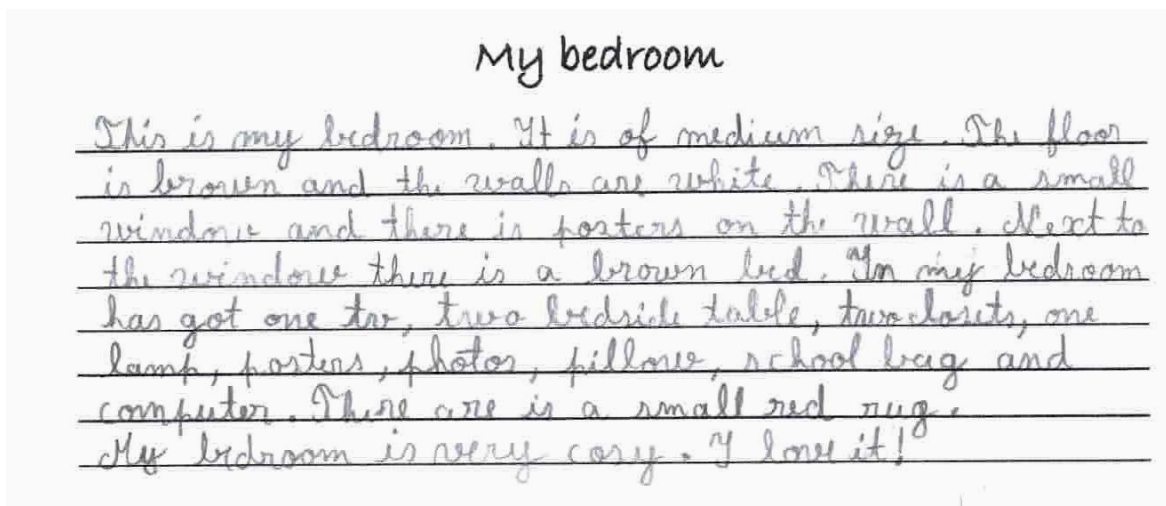 My bedroom
This is my bedroom. It is of medium size. The floor
is brown and the walls are white. There is a small
window and there is posters on the wall. Next to
the window there is a brown bed. In my bedroom
has got one tv, two bedside table, two closets, one
lamp, posters, photos, pillow, school bag and
computer. There are is a small red rug.
My bedroom is very cosy. I love it!